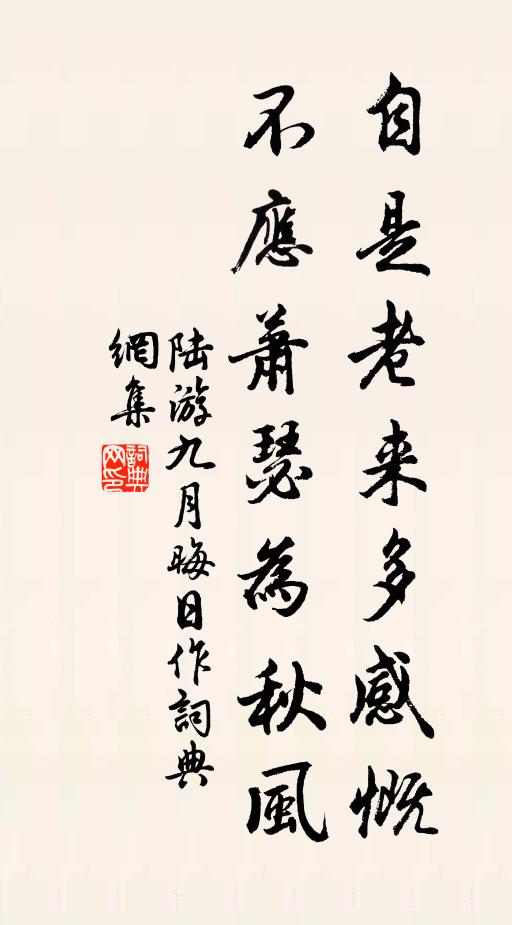 自是老来多感慨
不應蕭瑟為秋風
陸游九月晦日作詞典
網集
詞典
网印